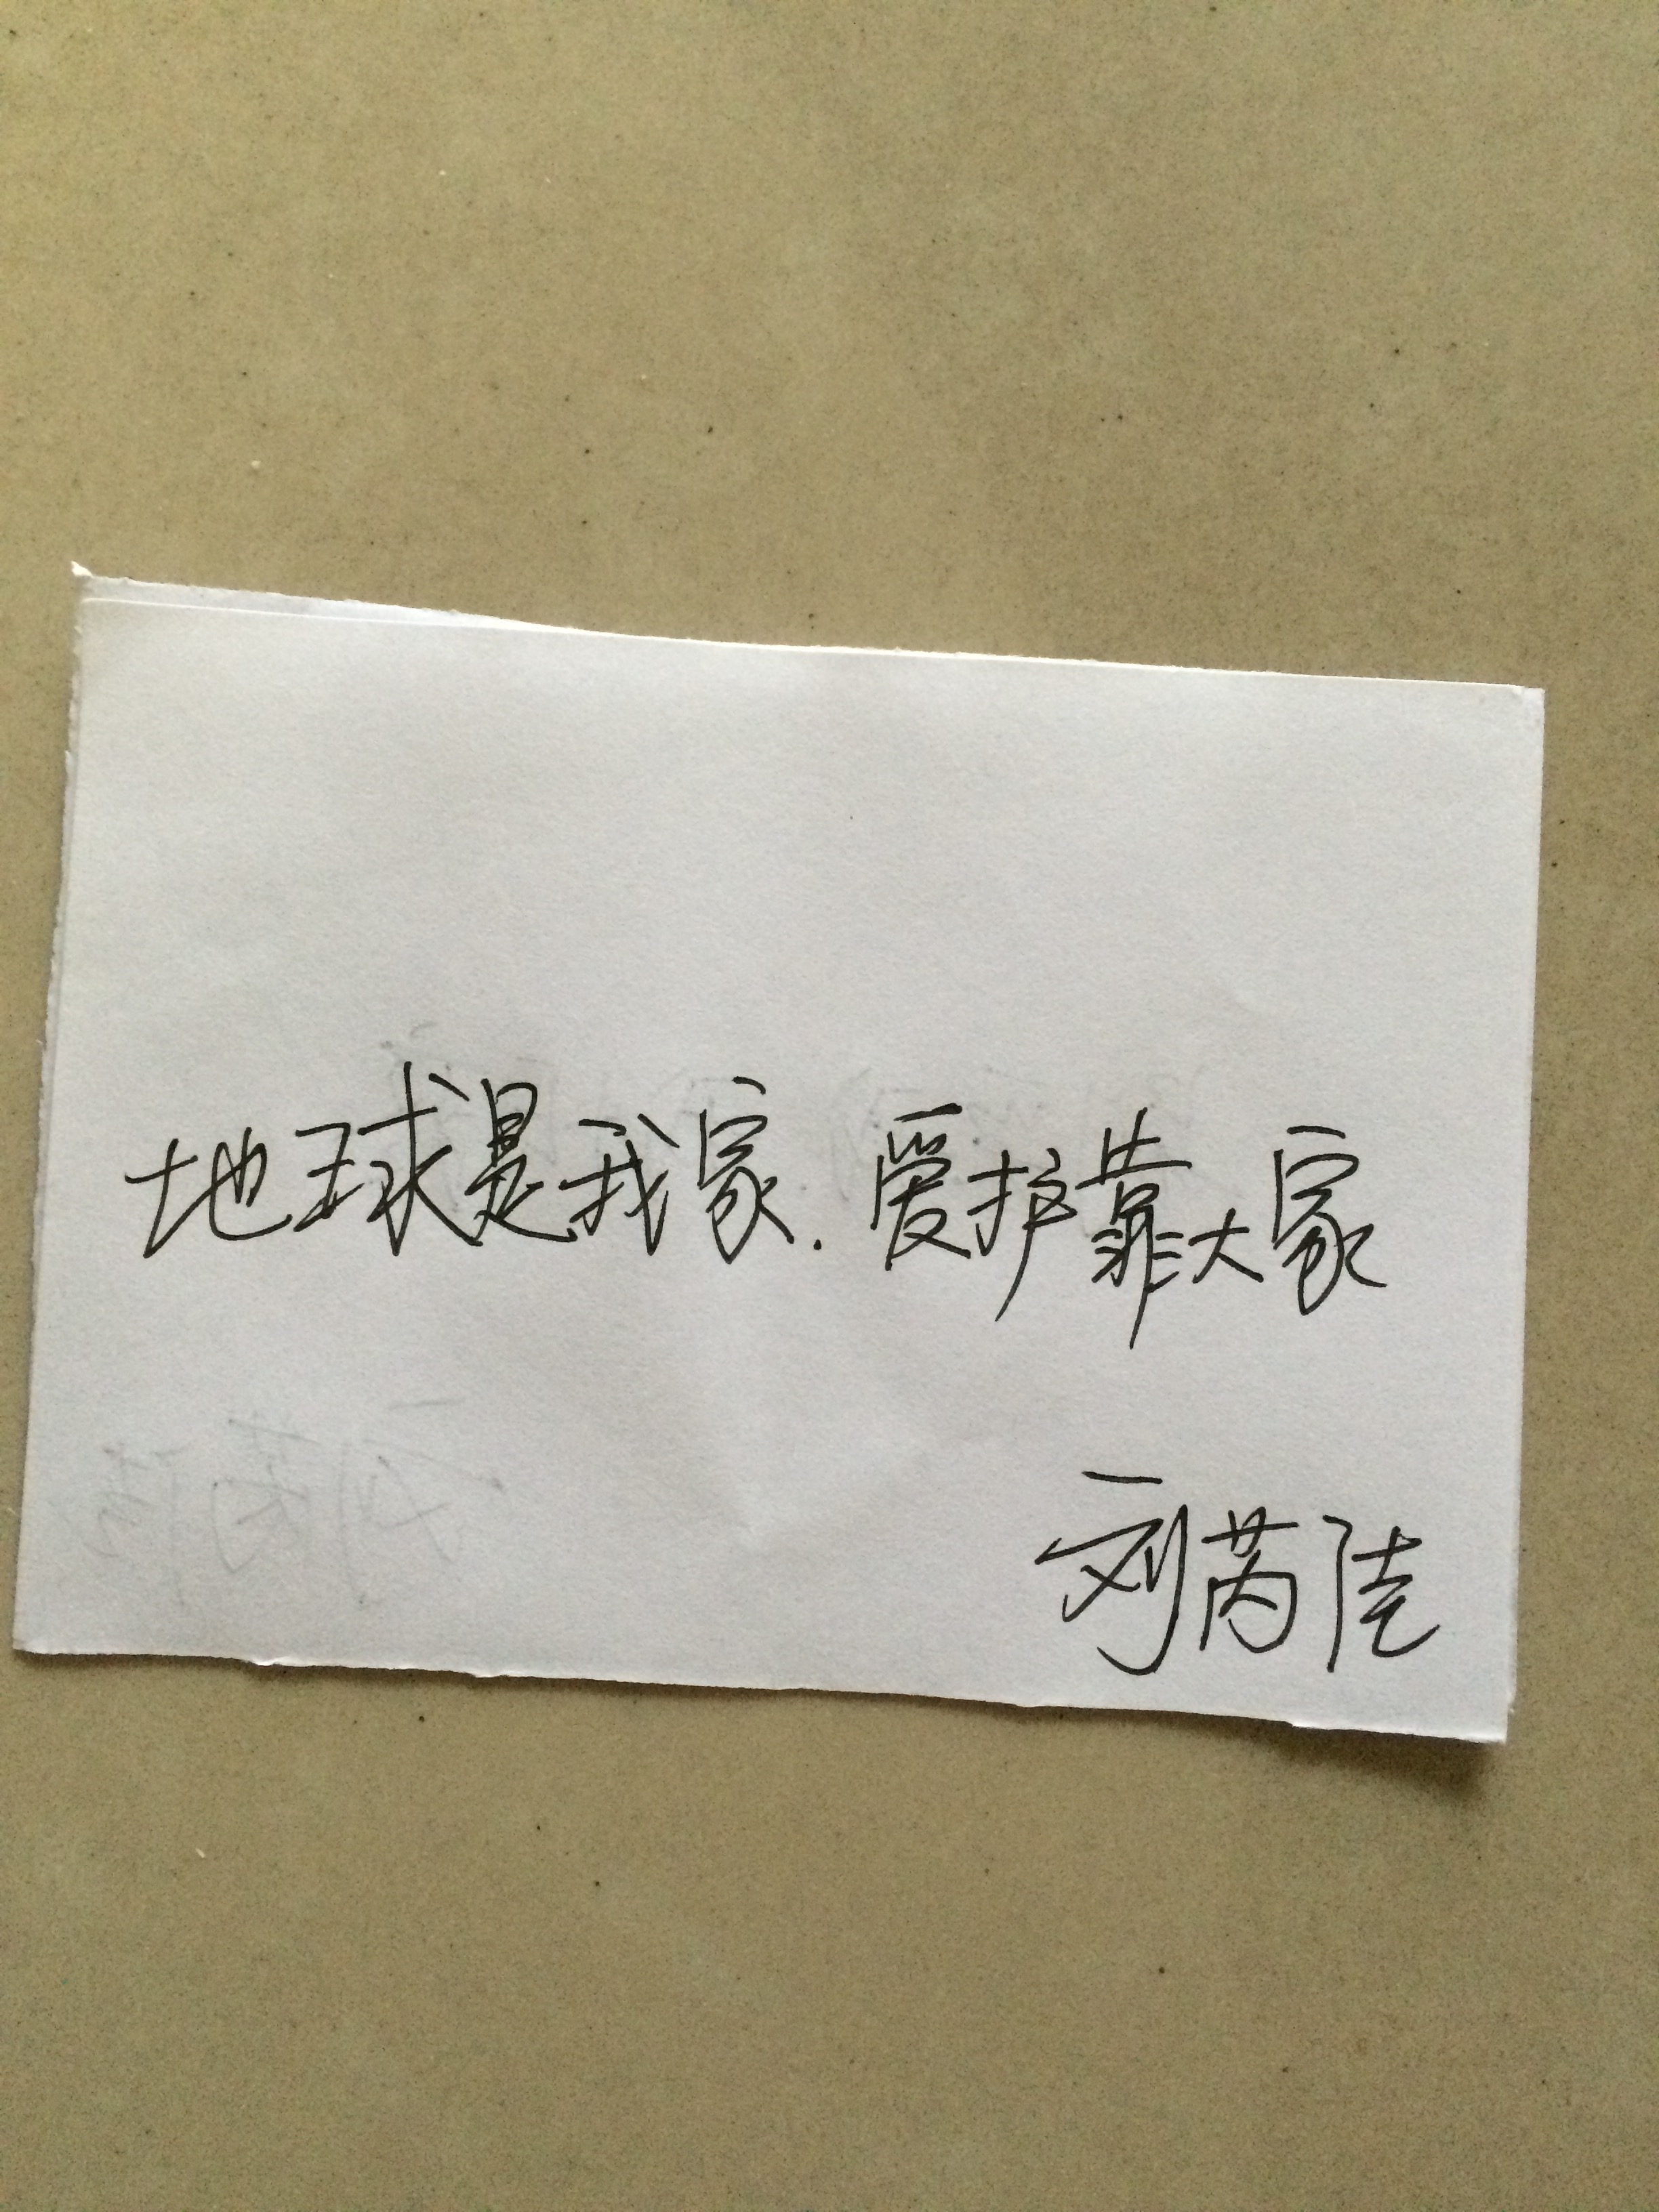 地球是我家.爱护靠大家
刘芮佳